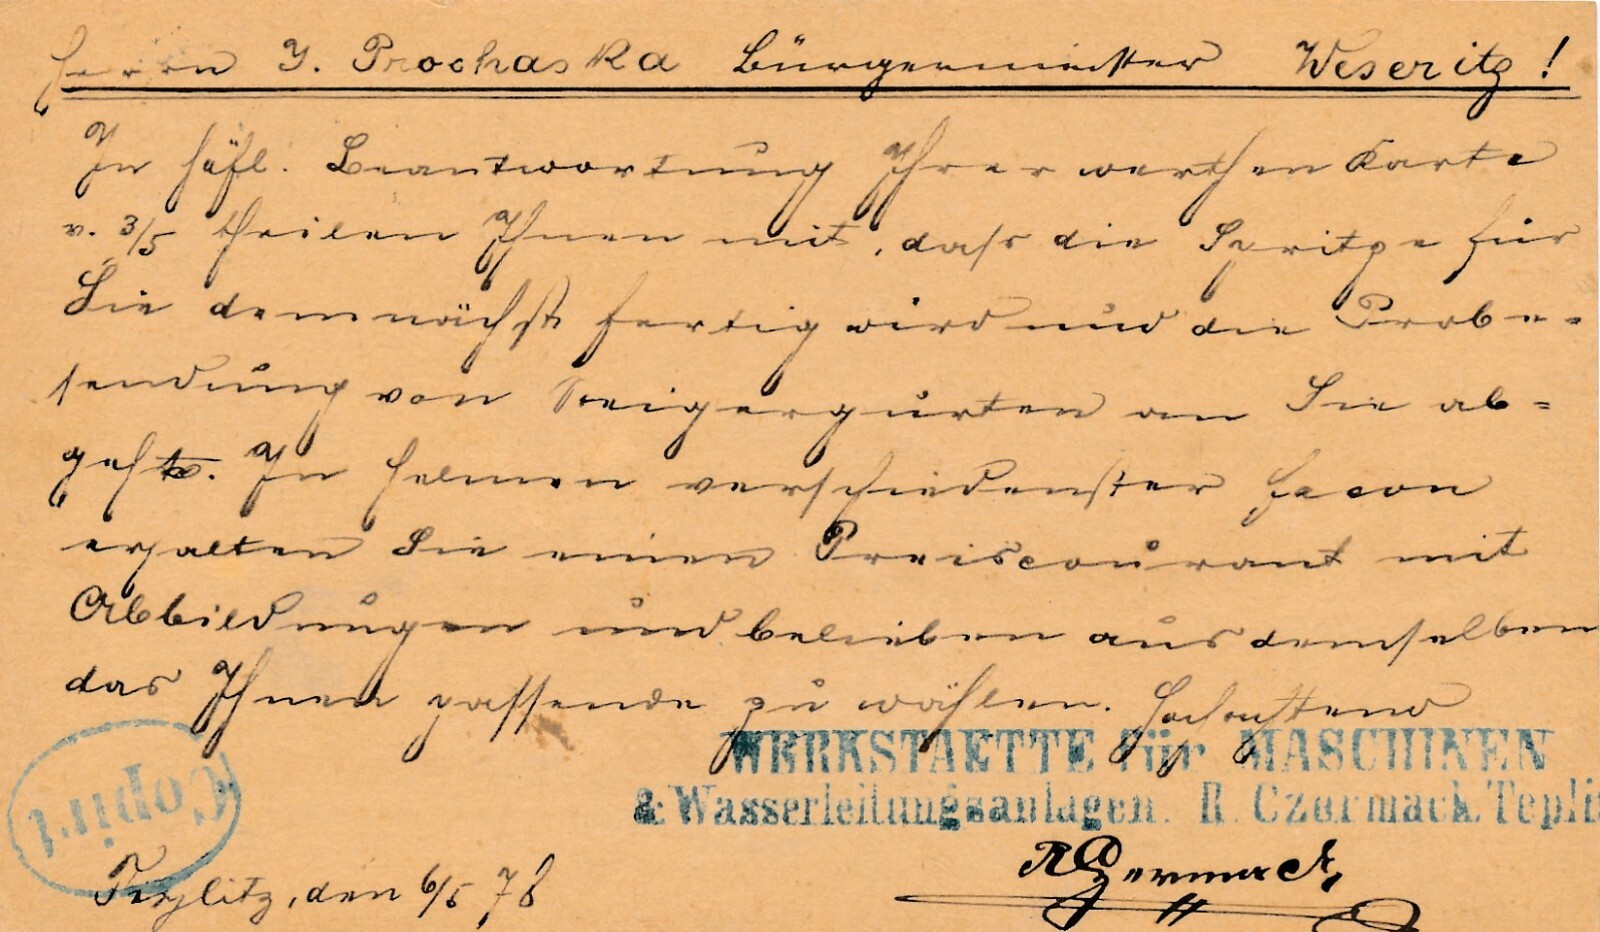 Herrn J. Prochaska Bürgermeister Weseritz!
In höfl. Beantwortung Ihrer werthen Karte
v. 3/5 theilen Ihnen mit, daſs die Spritze für
Sie demnächst fertig wird und die Probe-
sendung von Steigergurten an Sie ab-
geht. In Helmen verschiedenster Facon
erhalten Sie einen Preiscourant mit
Abbildungen und belieben aus demselben
das Ihnen passende zu wählen. Hochachtend
WERKSTAETTE für MASCHINEN
& Wasserleitungsanlagen. R. Czermack Teplitz
Copirt
RCzermack
Teplitz, den 6/5 78